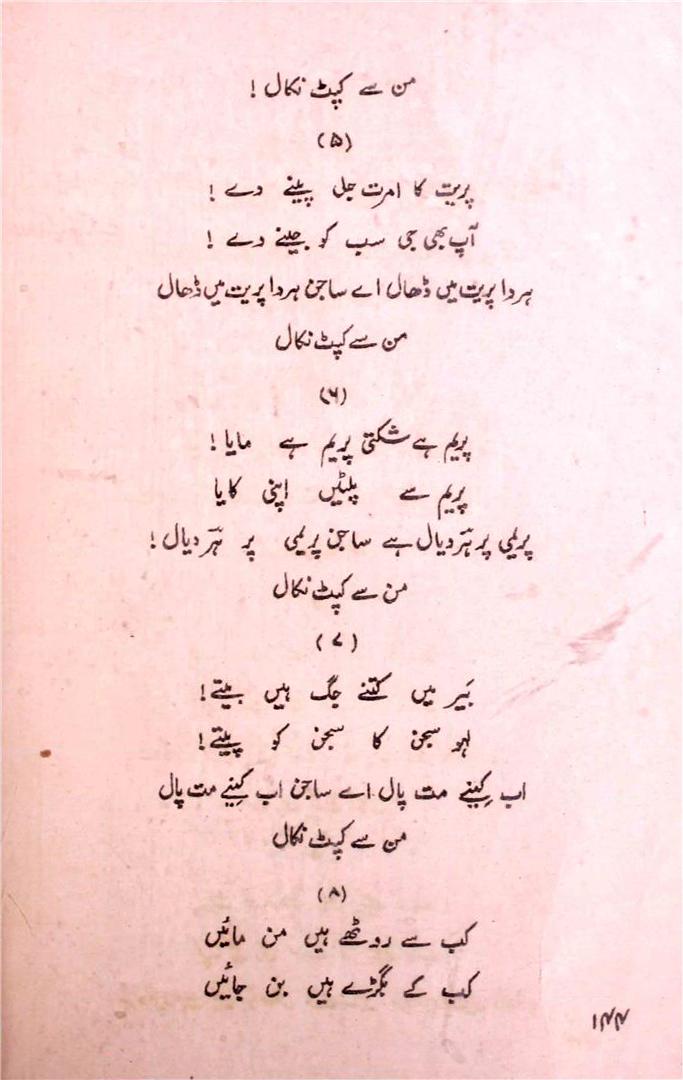 من سے کپٹ نکال !
(۵)
پریت کا امرت جل پینے دے !
آپ بھی جی سب کو جینے دے !
ہردا پریت میں ڈھال اے ساجن ہردا پریت میں ڈھال
من سے کپٹ نکال
(۶)
پریم ہے شکتی پریم ہے مایا !
پریم سے پلٹیں اپنی کایا
پریمی پر ہَر دیال ہے ساجن پریمی پر ہَر دیال !
من سے کپٹ نکال
(۷)
بَیر میں کتنے جگ ہیں بیتے !
لہو سجن کا سجن کو پیتے !
اب کِینے مت پال اے ساجن اب کِینے مت پال
من سے کپٹ نکال
(۸)
کب سے روٹھے ہیں من مائیں
کب کے بگڑے ہیں بن جائیں
۱۴۴